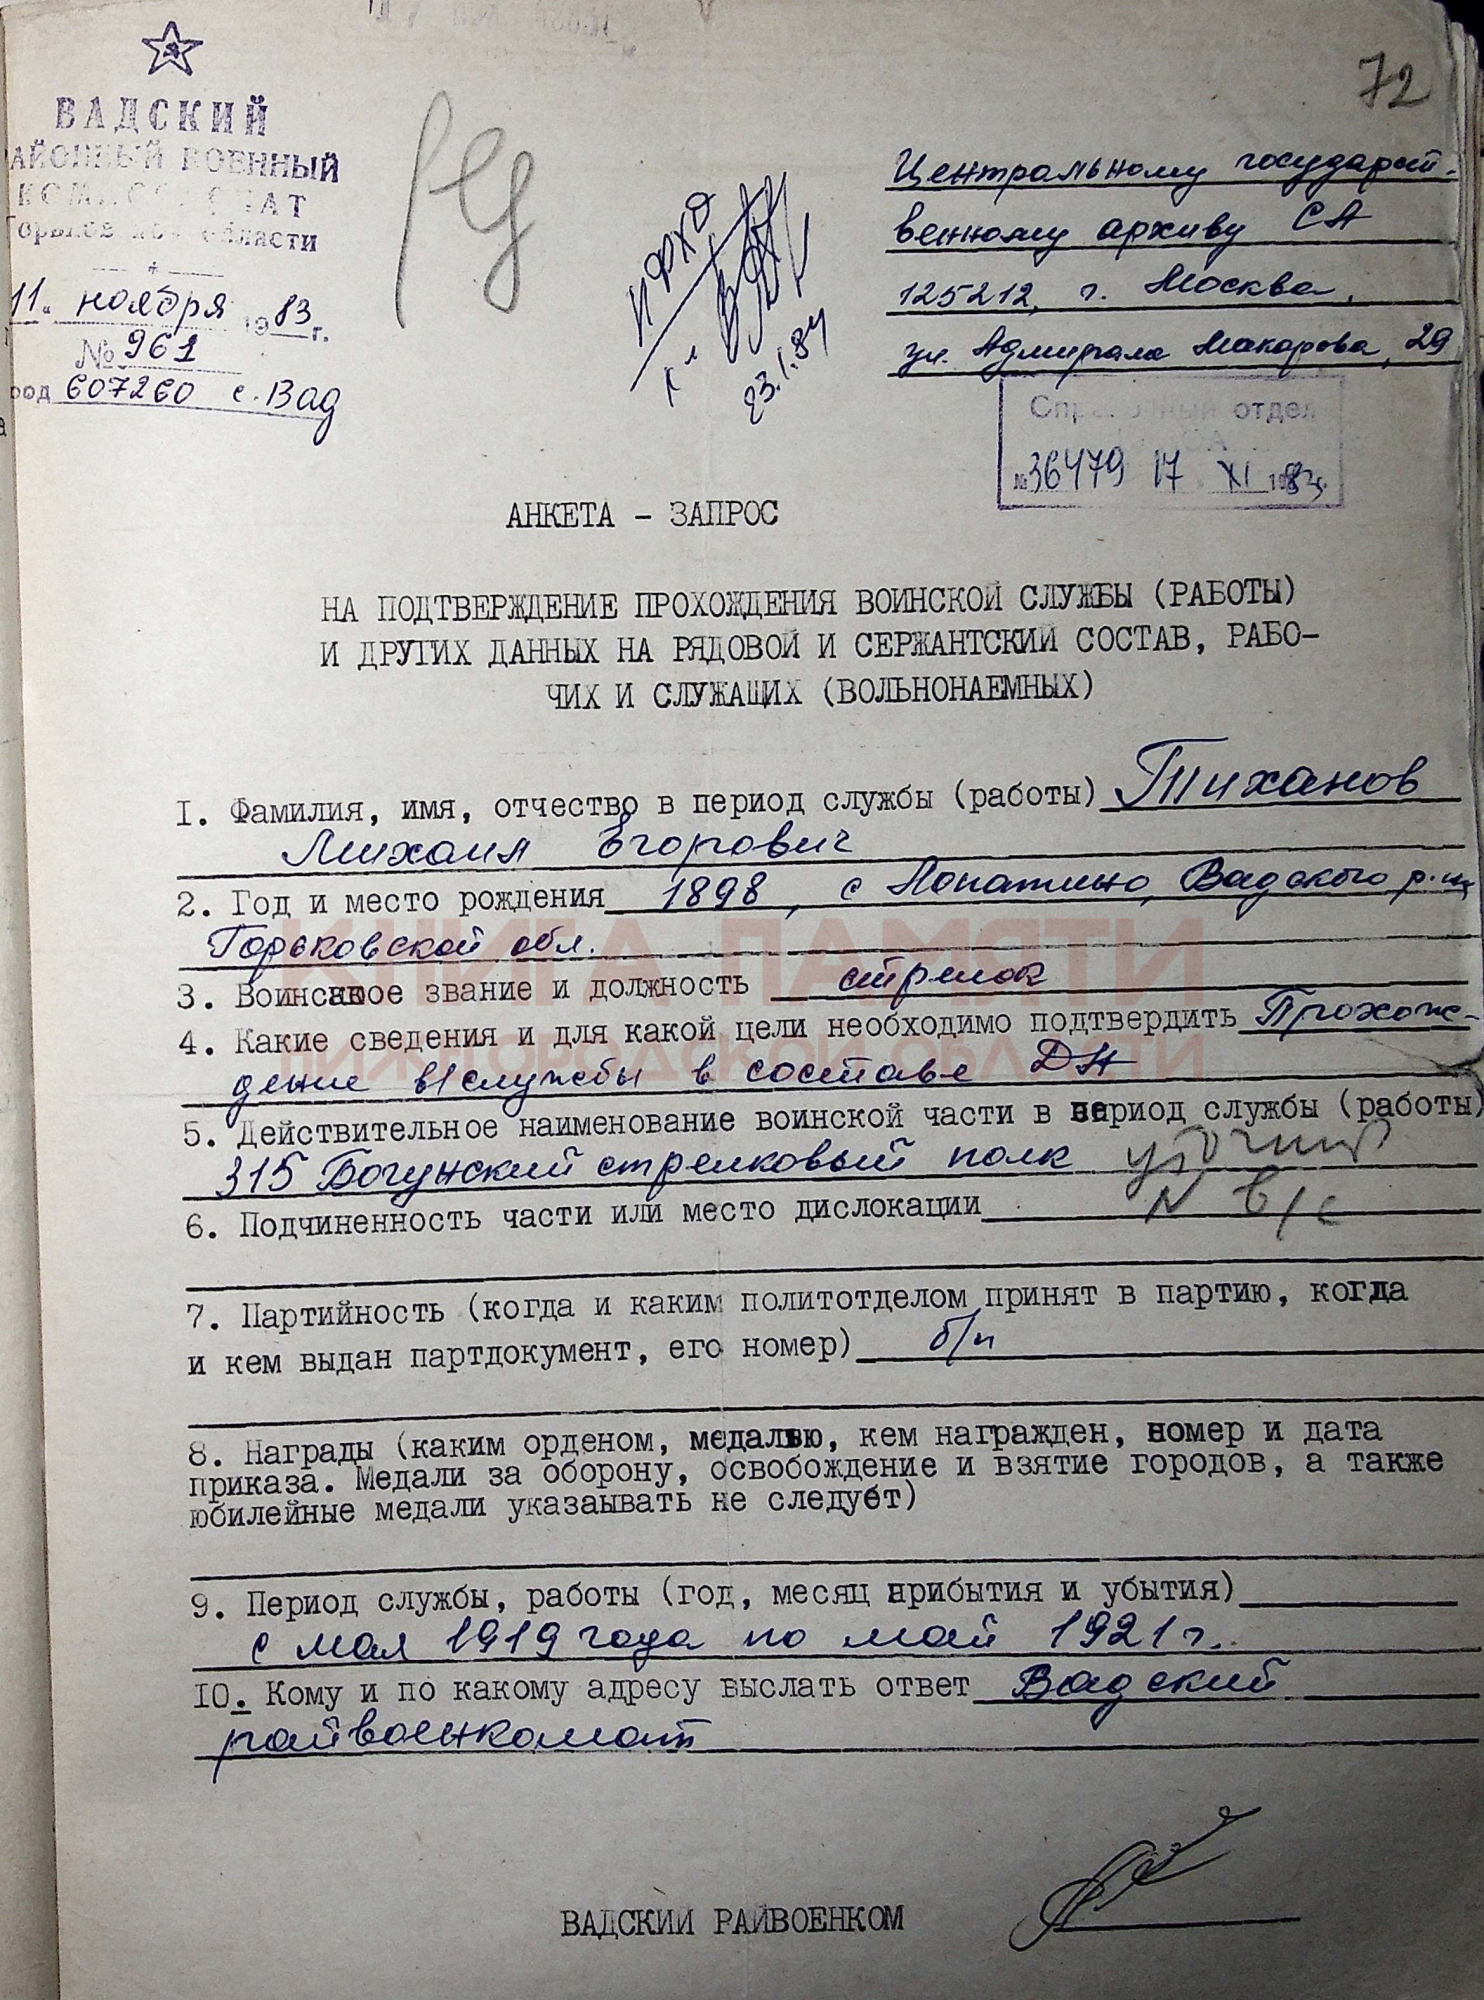 72
ВАДСКИЙ
АЙОННЫЙ ВОЕННЫЙ
КОМИССАРИАТ
Горьковской области
11 ноября 1983 г.
№ 961
род 607260 с. Вад
Центральному государст-
венному архиву СА
125212, г. Москва,
ул. Адмирала Макарова, 29
23.1.84
Справочный отдел
№ 36479 17 XI 1983г.
АНКЕТА - ЗАПРОС
НА ПОДТВЕРЖДЕНИЕ ПРОХОЖДЕНИЯ ВОИНСКОЙ СЛУЖБЫ (РАБОТЫ)
И ДРУГИХ ДАННЫХ НА РЯДОВОЙ И СЕРЖАНТСКИЙ СОСТАВ, РАБО-
ЧИХ И СЛУЖАЩИХ (ВОЛЬНОНАЕМНЫХ)
I. Фамилия, имя, отчество в период службы (работы) Тиханов
Михаил Егорович
2. Год и место рождения 1898, с Лопатино, Вадского р.на
Горьковской обл.
3. Воинское звание и должность стрелок
4. Какие сведения и для какой цели необходимо подтвердить Прохож-
дение в/службы в составе ДА
5. Действительное наименование воинской части в период службы (работы)
315 Богунский стрелковый полк
N в/с
6. Подчиненность части или место дислокации
7. Партийность (когда и каким политотделом принят в партию, когда
и кем выдан партдокумент, его номер) б/п
8. Награды (каким орденом, медалью, кем награжден, номер и дата
приказа. Медали за оборону, освобождение и взятие городов, а также
юбилейные медали указаывать не следует)
9. Период службы, работы (год, месяц прибытия и убытия)
с мая 1919 года по май 1921 г.
IO. Кому и по какому адресу выслать ответ Вадский
райвоенкомат
ВАДСКИЙ РАЙВОЕНКОМ
КНИГА ПАМЯТИ
НИЖЕГОРОДСКОЙ ОБЛАСТИ